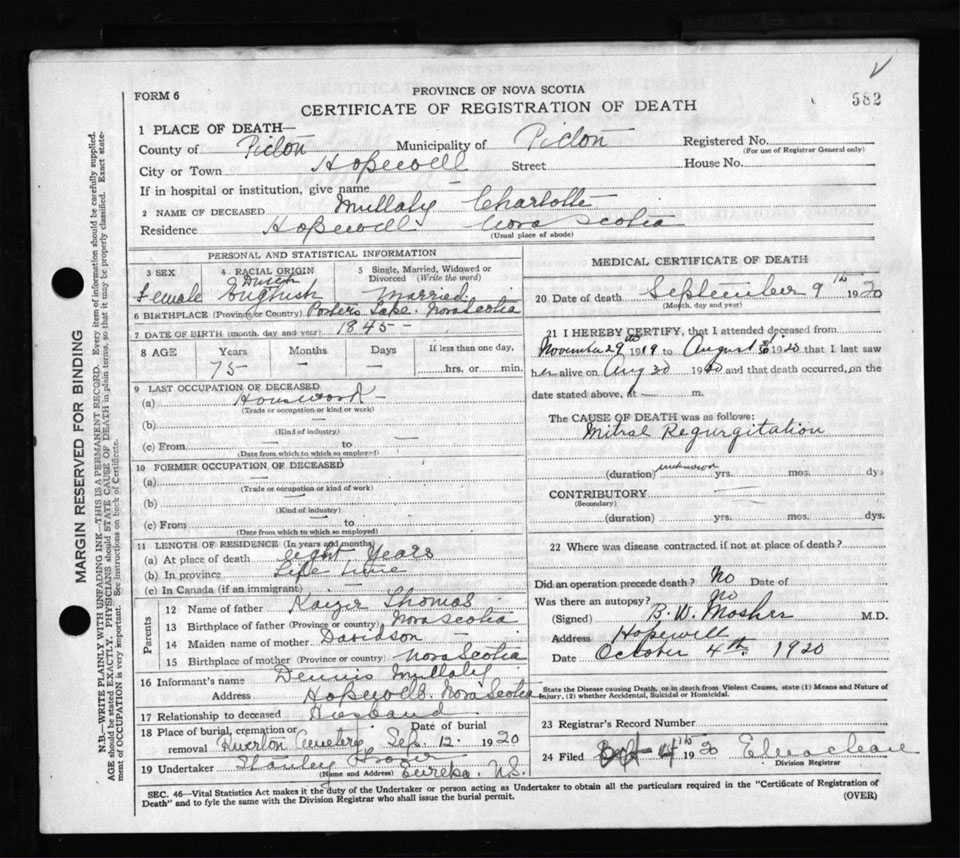 582
FORM 6
PROVINCE OF NOVA SCOTIA
CERTIFICATE OF REGISTRATION OF DEATH
MARGIN RESERVED FOR BINDING
N.B.—WRITE PLAINLY WITH UNFADING INK—THIS IS A PERMANENT RECORD. Every item of information should be carefully supplied.
AGE should be stated EXACTLY. PHYSICIANS should STATE CAUSE OF DEATH in plain terms, so that it may be properly classified. Exact state-
ment of OCCUPATION is very important. See instructions on back of Certificate.
1 PLACE OF DEATH—
County of Pictou Municipality of Pictou Registered No.
(For use of Registrar General only)
City or Town Hopewell Street House No.
If in hospital or institution, give name —
2 NAME OF DECEASED Mullaly Charlotte
Residence Hopewell Nova Scotia
(Usual place of abode)
PERSONAL AND STATISTICAL INFORMATION
3 SEX Female
4 RACIAL ORIGIN Dutch English
5 Single, Married, Widowed or Divorced (Write the word) Married
6 BIRTHPLACE (Province or Country) Porters Lake. Nova Scotia
7 DATE OF BIRTH (month, day and year) 1845 —
8 AGE Years Months Days If less than one day,
75 — — hrs. or min.
9 LAST OCCUPATION OF DECEASED
(a) Housework
(Trade or occupation or kind of work)
(b) —
(Kind of industry)
(c) From — to —
(Date from which to which so employed)
10 FORMER OCCUPATION OF DECEASED
(a) —
(Trade or occupation or kind of work)
(b) —
(Kind of industry)
(c) From — to
(Date from which to which so employed)
11 LENGTH OF RESIDENCE (In years and months)
(a) At place of death eight years
(b) In province Life time
(c) In Canada (if an immigrant) —
Parents
12 Name of father Kaizer Thomas
13 Birthplace of father (Province or country) Nova Scotia
14 Maiden name of mother Davidson —
15 Birthplace of mother (Province or country) Nova Scotia
16 Informant's name Dennis Mullaly
Address Hopewell. Nova Scotia
17 Relationship to deceased Husband
18 Place of burial, cremation or removal Riverton Cemetery Date of burial Sep. 12. 1920
19 Undertaker Stanley Eureka. N.S.
(Name and Address)
MEDICAL CERTIFICATE OF DEATH
20 Date of death September 9th 1920
(Month, day and year)
21 I HEREBY CERTIFY, that I attended deceased from
November 29th 1919 to August 30 1920 that I last saw
her alive on Aug 30 1920 and that death occurred, on the
date stated above, at — m.
The CAUSE OF DEATH was as follows:
Mitral Regurgitation
(duration) unknown yrs. mos. dys
CONTRIBUTORY —
(Secondary)
(duration) yrs. mos. dys.
22 Where was disease contracted if not at place of death?
—
Did an operation precede death? No Date of
Was there an autopsy? No
(Signed) B. W. Mosher M.D.
Address Hopewell
Date October 4th. 1920
State the Disease causing Death, or in death from Violent Causes, state (1) Means and Nature of
Injury, (2) whether Accidental, Suicidal or Homicidal.
23 Registrar's Record Number
24 Filed 4th 1920
Division Registrar
SEC. 46—Vital Statistics Act makes it the duty of the Undertaker or person acting as Undertaker to obtain all the particulars required in the "Certificate of Registration of
Death" and to fyle the same with the Division Registrar who shall issue the burial permit.
(OVER)